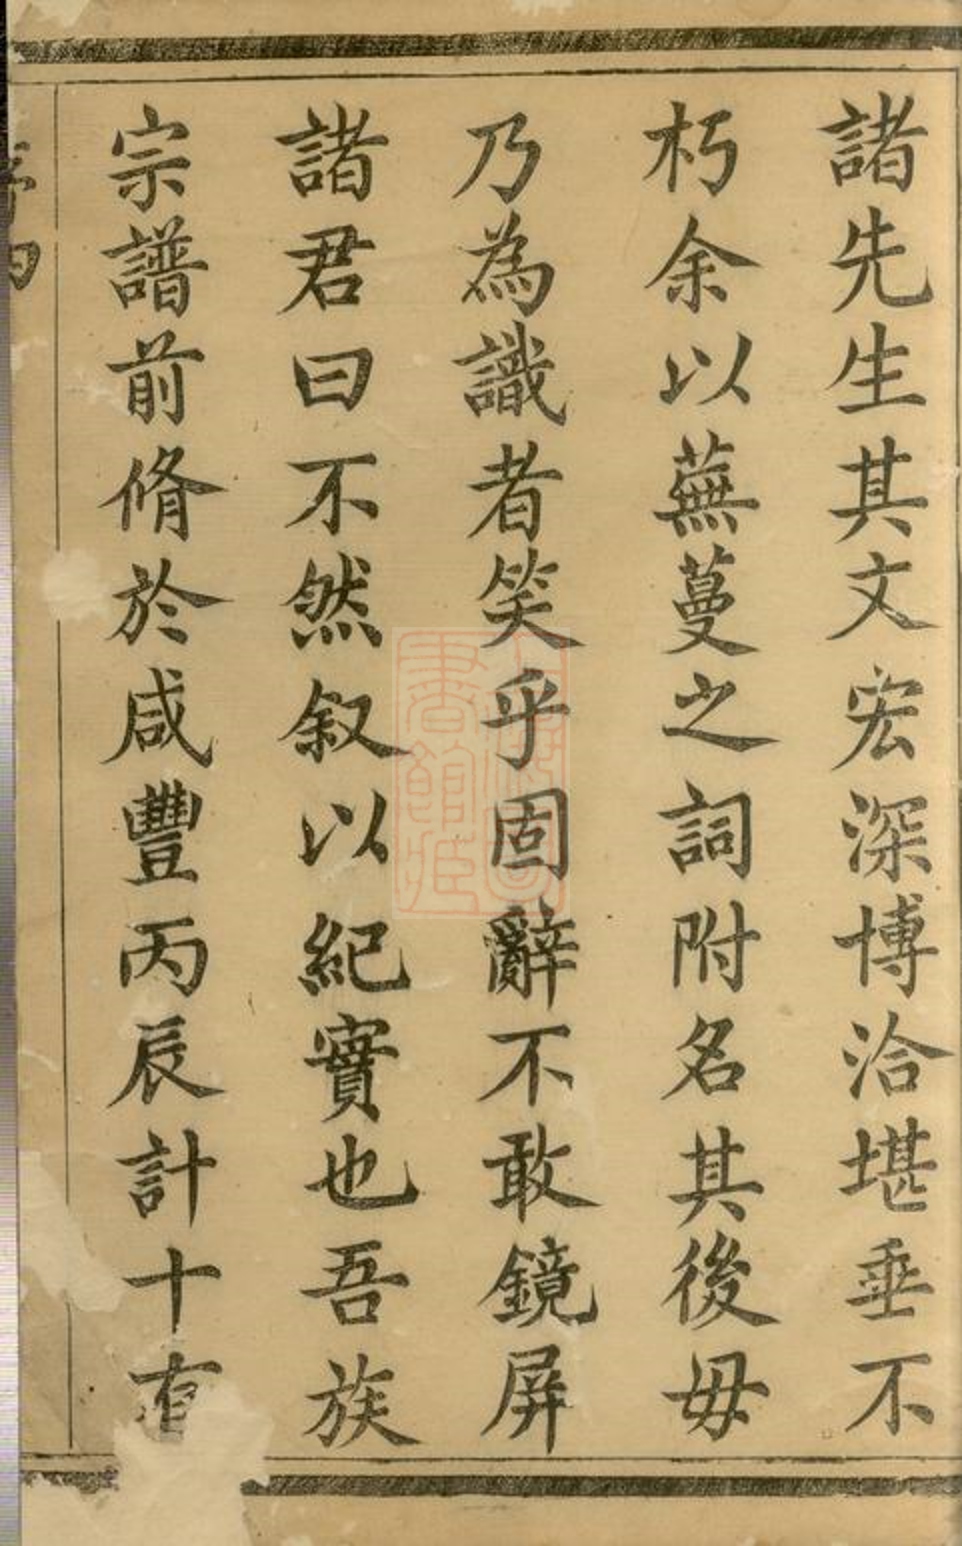 諸先生其文宏深博洽堪垂不
朽余以蕪蔓之詞附名其後毋
乃為識者笑乎固辭不敢鏡屏
諸君曰不然叙以紀實也吾族
宗譜前脩於咸豐丙辰計十有